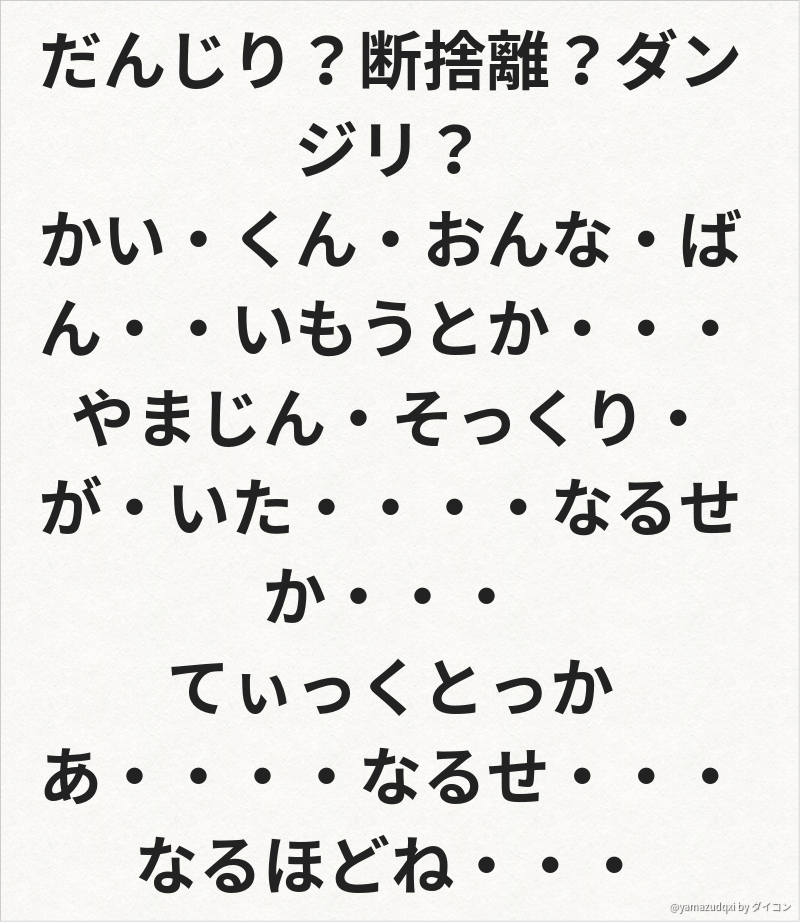 だんじり？断捨離？ダン
ジリ？
かい・くん・おんな・ば
ん・・いもうとか・・・
やまじん・そっくり・
が・いた・・・・なるせ
か・・・
てぃっくとっか
あ・・・・なるせ・・・
なるほどね・・・
@yamazudqxi by ダイコン